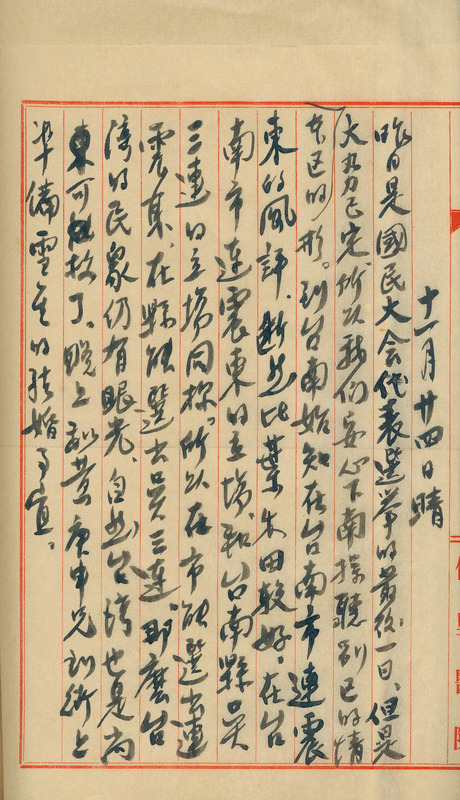 十一月廿四日晴
昨日是國民大会代表選挙的最後一日、但是
大勢已定、所以我们安心下南探聽別已的情
形。到台南始知在台南市連震
東的風評、断然比葉朱田較好。在台
南市連震東的立塲、和台南縣吳
三連的立塲同樣。所以在市能選出連
震東、在縣能選出吳三連、那麼台
湾的民衆仍有眼光、自然台湾也是尚
東可救了。晚上訪黃庚申兄訓術上
準備雪生的結婚事宜。